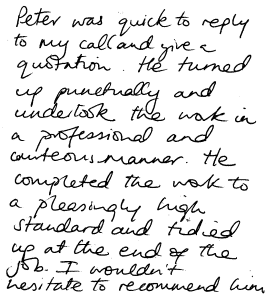 Peter was quick to reply
to my call and give a
quotation. He turned
up punctually and
undertook the work in
a professional and
courteous manner. He
completed the work to
a pleasingly high
standard and tidied
up at the end of the
job. I wouldn't
hesitate to recommend him